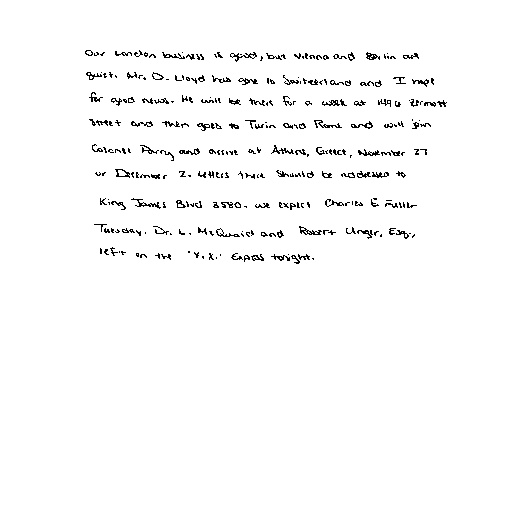 Our London business is good, but Vienna and Berlin are
quiet. Mr. D. Lloyd has gone to Switzerland and I hope
for good news. He will be there for a week at 1496 Zermott
Street and then goes to Turin and Rome and will join
Colonel Parry and arrive at Athens, Greece, November 27
or December 2. Letters there should be addressed to
King James Blvd 3580. We expect Charles E. Fuller
Tuesday. Dr. L. McQuaid and Robert Unger, Esq.,
left on the "Y.X." Express tonight.